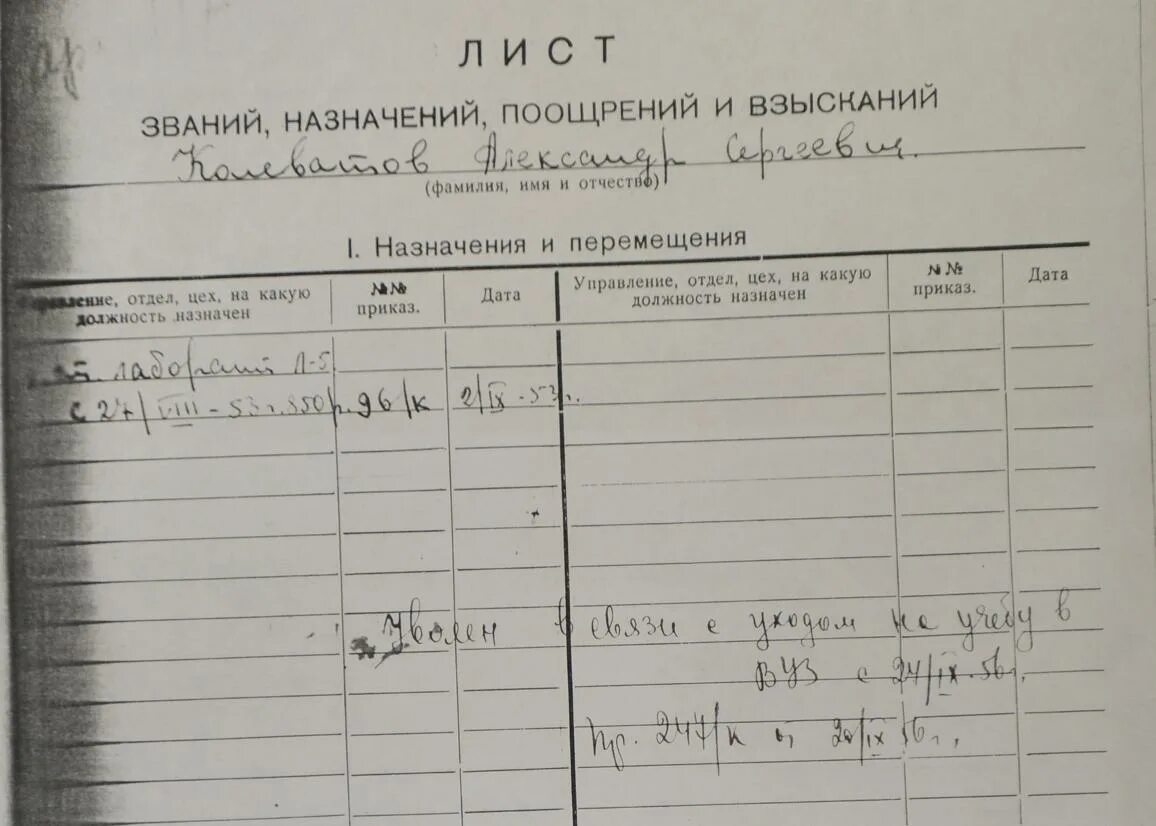 ЛИСТ
ЗВАНИЙ, НАЗНАЧЕНИЙ, ПООЩРЕНИЙ И ВЗЫСКАНИЙ
Колеватов Александр Сергеевич.
(фамилия, имя и отчество)
I. Назначения и перемещения
Управление, отдел, цех, на какую должность назначен
№№ приказ.
Дата
Управление, отдел, цех, на какую должность назначен
№№ приказ.
Дата
ст. лаборант Л-5
с 27/VIII-53г. 850р. 96/к 2/IX-53г.
Уволен в связи с уходом на учебу в
ВУЗ с 24/IX-56г.
Пр. 247/к от 20/IX 56г.